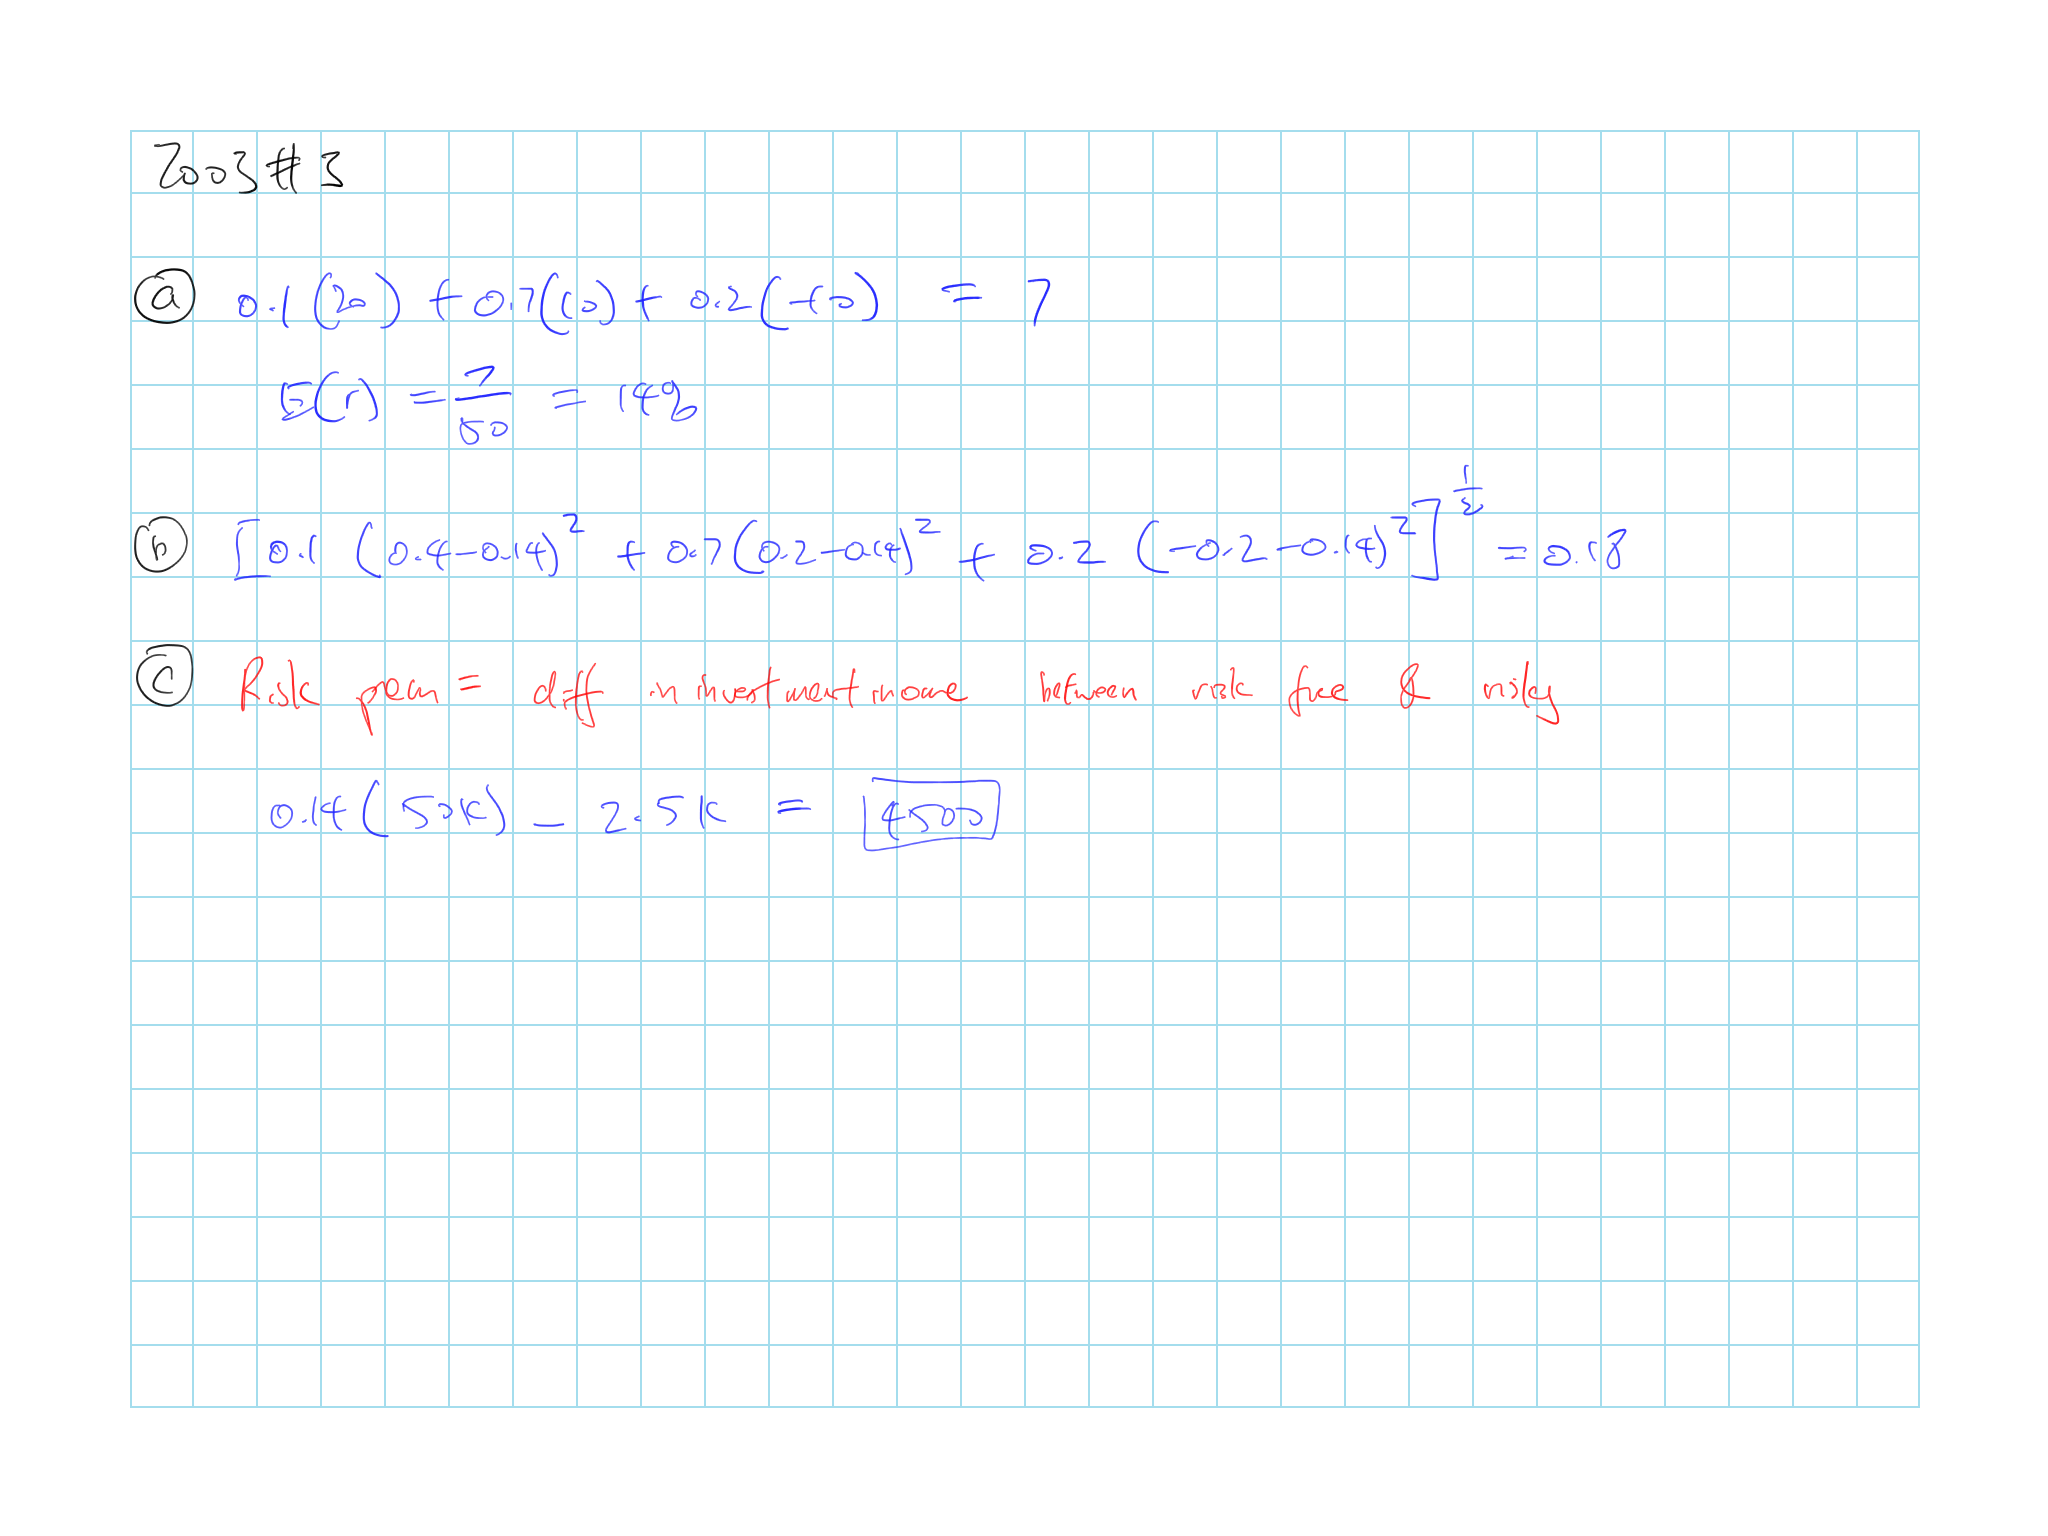 2003 #3
(a) 0.1 (20) + 0.7(10) + 0.2(-10) = 7
E(r) = 7/50 = 14%
(b) [0.1 (0.4-0.14)² + 0.7(0.2-0.14)² + 0.2 (-0.2-0.14)²]^1/2 = 0.18
(c) Risk prem = diff in investment income between risk free & risky
0.14 (50K) - 2.5K = 4500